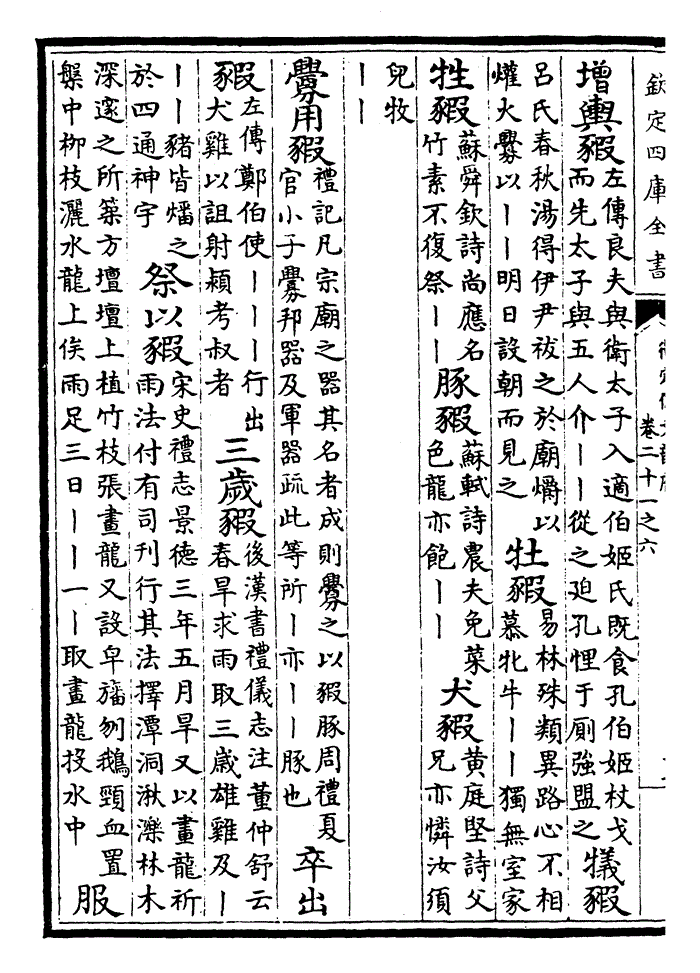 欽定四庫全書
卷二十一之六
增輿豭左傳良夫與衛太子入適伯姬氏既食孔伯姬杖戈而先太子與五人介丨丨從之廹孔悝于厠強盟之犧豭
呂氏春秋湯得伊尹祓之於廟爝以爟火釁以丨丨明日設朝而見之牡豭易林殊類異路心不相慕牝牛丨丨獨無室家
牲豭蘇舜欽詩尚應名竹素不復祭丨丨豚豭蘇軾詩農夫免菜色龍亦飽丨丨犬豭黄庭堅詩父兄亦憐汝須
兒牧丨丨
釁用豭禮記凡宗廟之器其名者成則釁之以豭豚周禮夏官小子釁邦器及軍器疏此等所丨亦丨丨豚也卒出
豭左傳鄭伯使丨丨丨行出犬雞以詛射頴考叔者三歲豭後漢書禮儀志注董仲舒云春旱求雨取三嵗雄雞及丨
丨丨豬皆燔之於四通神宇祭以豭宋史禮志景德三年五月旱又以畫龍祈雨法付有司刊行其法擇潭洞湫濼林木
深邃之所築方壇壇上植竹枝張畫龍又設皁旛刎鵝頸血置槃中柳枝灑水龍上俟雨足三日丨丨一丨取畫龍投水中服